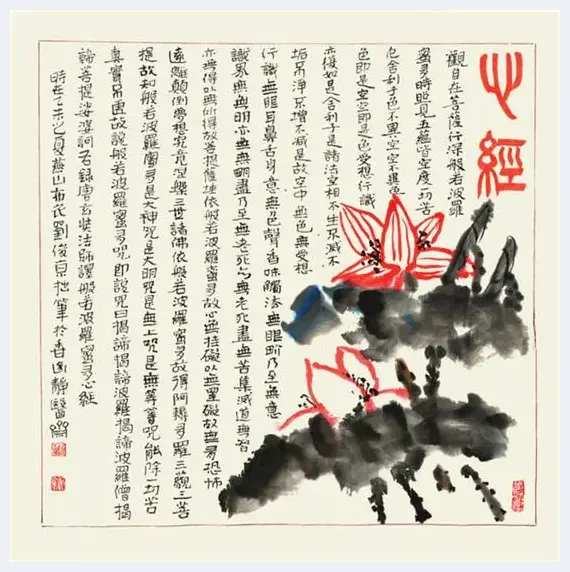 心經
觀自在菩薩行深般若波羅
蜜多時照見五蘊皆空度一切苦
厄舍利子色不異空空不異色
色即是空空即是色受想行識
亦復如是舍利子是諸法空相不生不滅不
垢不淨不增不減是故空中無色無受想
行識無眼耳鼻舌身意無色聲香味觸法無眼界乃至無意
識界無無明亦無無明盡乃至無老死亦無老死盡無苦集滅道無智
亦無得以無所得故菩提薩埵依般若波羅蜜多故心無挂礙以無罣礙故無有恐怖
遠離顛倒夢想究竟涅槃三世諸佛依般若波羅蜜多故得阿耨多羅三藐三菩
提故知般若波羅蜜多是大神咒是大明咒是無上咒是無等等咒能除一切苦
真實不虛故說般若波羅蜜多咒即說咒曰揭諦揭諦波羅揭諦波羅僧揭
諦菩提娑婆訶右錄唐玄奘法師譯般若波羅蜜多心經
時在乙未之夏燕山布衣劉俊京拙筆於香山靜